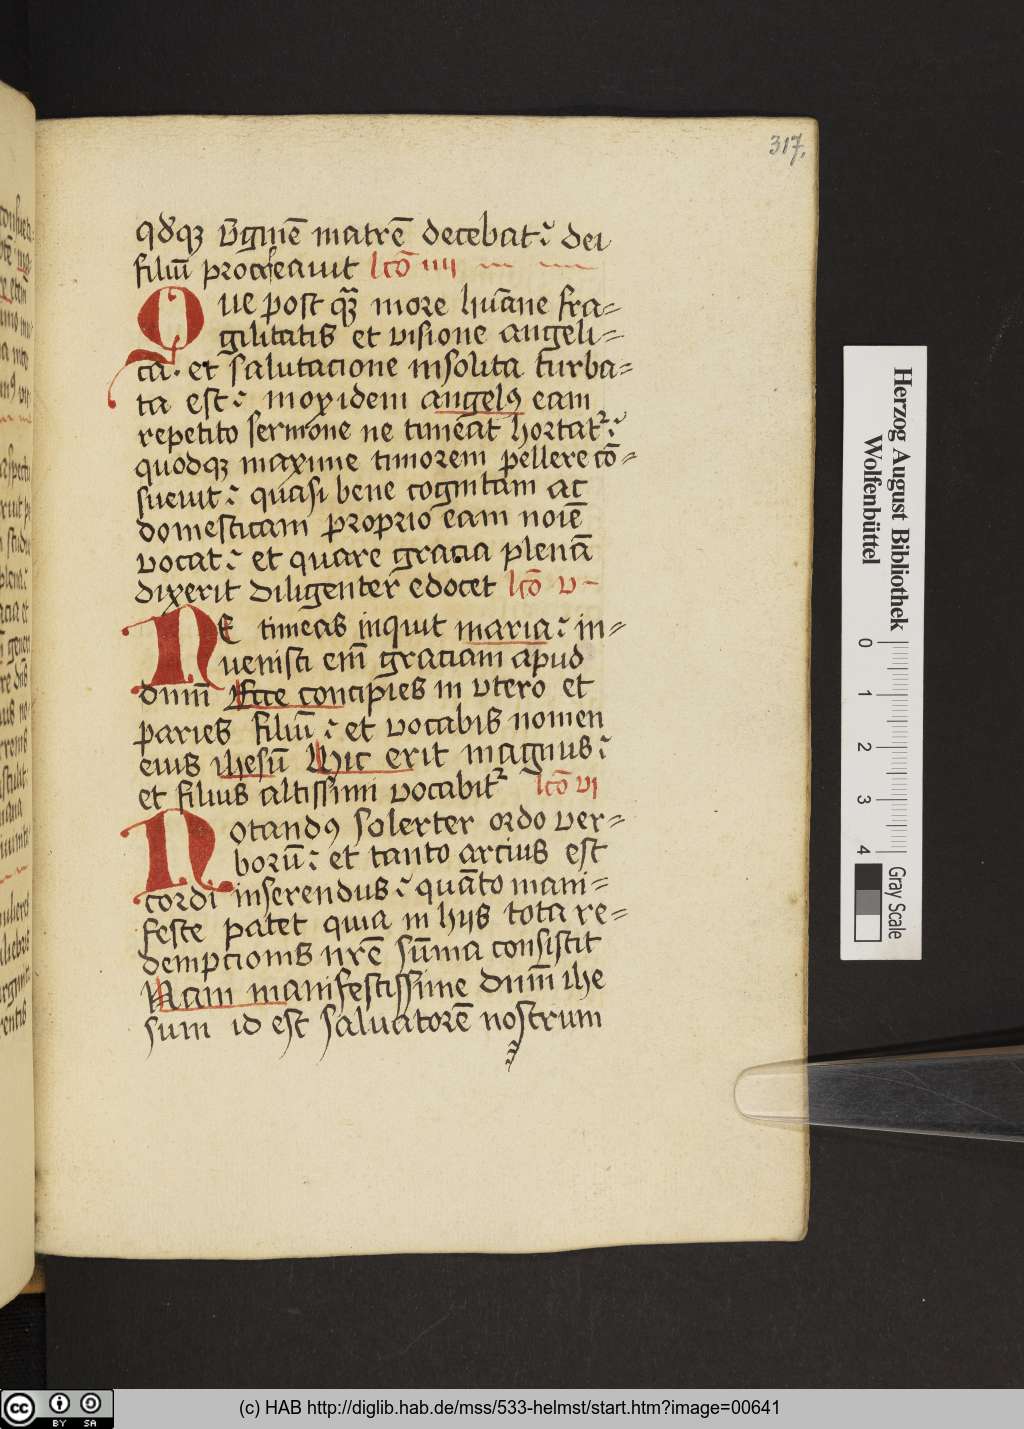 317.
qđqꝫ v̄ginē matrē decebat dei
filiū procreauit lcō iiii
Que post qꝫ more hūane fra=
gilitatis et visione angeli=
ca. et salutacione insolita turba=
ta est: moxidem angelꝰ eam
repetito sermone ne timeat hortat᷑:
quodqꝫ maxime timorem pellere cō=
sueuit: quasi bene cognitam ac
domesticam proprio eam noīe
vocat: et quare gracia plenā
dixerit diligenter edocet lcō v
NE timeas inquit maria: in=
uenisti em̄ graciam apud
dnm̄ Ecce concipies in vtero et
paries filiū: et vocabis nomen
eius ihesū Hic erit magnus:
et filius altissimi vocabit᷑ lcō vi
Notandꝰ solerter ordo ver=
borū: et tanto arcius est
cordi inserendus: quāto mani=
feste patet quia in hijs tota re=
dempcionis nr̄e sūma consistit
Nam manifestissime dnm̄ ihe
sum id est saluatorē nostrum
Herzog August Bibliothek
Wolfenbüttel
0 1 2 3 4
Gray Scale
cc BY SA
(c) HAB http://diglib.hab.de/mss/533-helmst/start.htm?image=00641